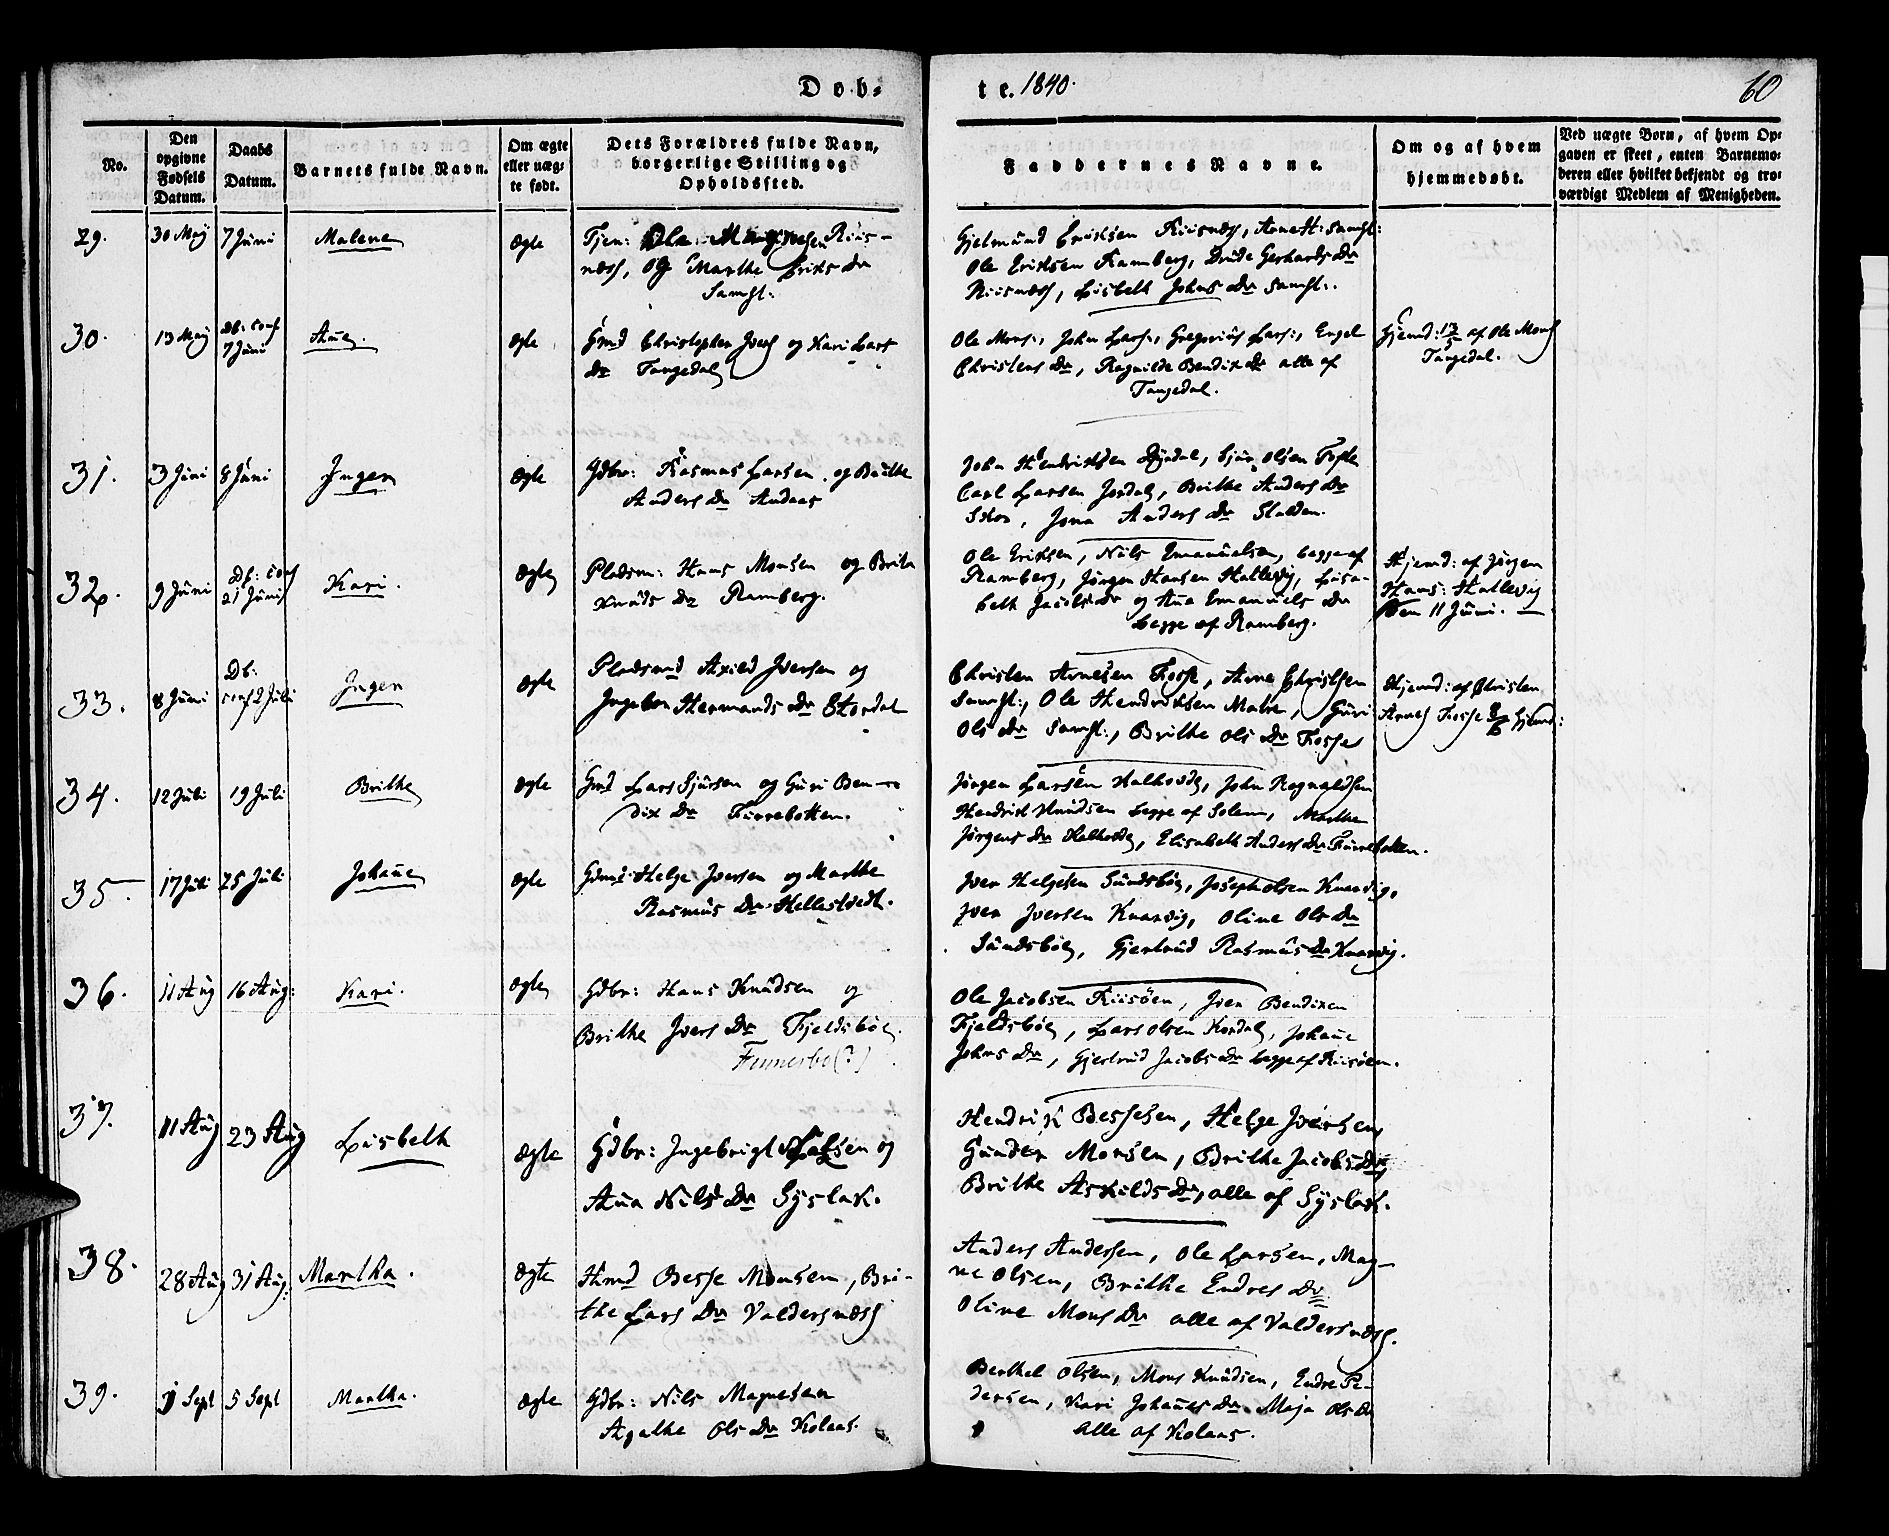 Døb-
te. 1840.
60
No.
Den opgivne Fødsels Datum.
Daabs Datum.
Barnets fulde Navn.
Om ægte eller uægte født.
Dets Forældres fulde Navn, borgerlige Stilling og Opholdssted.
Faddernes Navne.
Om og af hvem hjemmedøbt.
Ved uægte Børn, af hvem Opgaven er skeet, enten Barnemoderen eller hvilket bekjendt og troværdigt Medlem af Menigheden.
29. 30 May 7 Juni Malene ægte
Tjen: Ole Magnesen Riis-
næss, og Marthe Eriks Dr
Samst:
Gjelmund Eriksen Riisnæss, Arne H: Samst:
Ole Eriksen Ramberg, Drude Gerhards Dr
Riisnæss, Lisbeth Johns Dr Samst:.
30. 13 May Db: conf 7 Juni Ane. ægte
Gmd Christopher Ivers og Kari Lars
Dr Tangedal
Ole Mons:, John Lars:, Gregorius Lars:, Engel
Christens Dr, Ragnilde Bendix Dr alle af
Tangedal.
Hjemd: 13/5 af Ole Mons
Tangedal.
31. 3 Juni 8 Juni Inger ægte
Gdbr: Rasmus Larsen og Brithe
Anders Dr Andaas
John Hendriksen Dyrdal, Sjur Olsen Fosse
Carl Larsen Jordal, Brithe Anders Dr
Skor, Jona Anders Dr Stalden.
32. 9 Juni Db: conf 21 Juni Kari. ægte
Pladsm: Hans Monsen og Brita
Knuds Dr Ramberg.
Ole Eriksen, Nils Emanuelsen, begge af
Ramberg, Jørgen Hansen Hallevig, Lisa-
beth Jacobs Dr og Ane Emanuels Dr
begge af Ramberg.
Hjemd: af Jørgen
Hans: Hallevig
den 11 Juni.
33. 8 Juni Db: conf 2 Juli Inger ægte
Pladsmd Axild Iversen og
Ingebor Hermands Dr Stordal
Christen Arnesen Fosse, Arne Christsen
Samst:, Ole Hendriksen Matre, Guri
Ols Dr Samst:, Brithe Ols Dr Fosse
Hjemd: af Christen
Arnes Fosse 8/6 hjemd:
34. 12 Juli 19 Juli Brithe ægte
Gmd Lars Sjursen og Guri Ben-
dix Dr Furrebotten.
Jørgen Larsen Halhovde, John Regnaldsen
Hendrik Knudsen begge af Solem, Marthe
Jørgens Dr Halhovde, Elisabeth Anders Dr Furrebotten.
35. 17 Juli 25 Juli Johane ægte
Gdmd: Helge Iversen og Marthe
Rasmus Dr Hellestvedt.
Iver Helgesen Sundsbøe, Joseph Olsen Knarvig,
Iver Iversen Knarvig, Oline Ols Dr
Sundsbøe, Gjertrud Rasmus Dr Knarvig.
36. 11 Aug 16 Aug: Kari. ægte
Gdbr: Hans Knudsen og
Brithe Ivers Dr Fjeldsbøe.
Finnesbo (?)
Ole Jacobsen Riisøen, Iver Bendixen
Fjeldsbøe, Lars Olsen Kordal, Johane
Johns Dr, Gjertrud Jacobs Dr begge af Riisøen.
37. 11 Aug 23 Aug Lisbeth ægte
Gdbr: Ingebrigt Larsen og
Ana Nils Dr Syslak.
Hendrik Bessesen, Helge Iversen
Gunder Monsen, Brithe Jacobs Dr
Brithe Askilds Dr, alle af Syslak.
38. 28 Aug 31 Aug: Martha. ægte
Hmd Besse Monsen, Bri-
the Lars Dr Valdersnæss
Anders Andersen, Ole Larsen, Mag-
ne Olsen, Brithe Endres Dr
Oline Mons Dr alle af Valdersnæss.
39. 1 Sept 5 Sept Martha. ægte
Gdbr: Nils Magnesen
Agathe Ols Dr Kolaas.
Berthel Olsen, Mons Knudsen, Endre Pe-
dersen, Kari Johanes Dr Maja Ols Dr
alle af Kolaas.